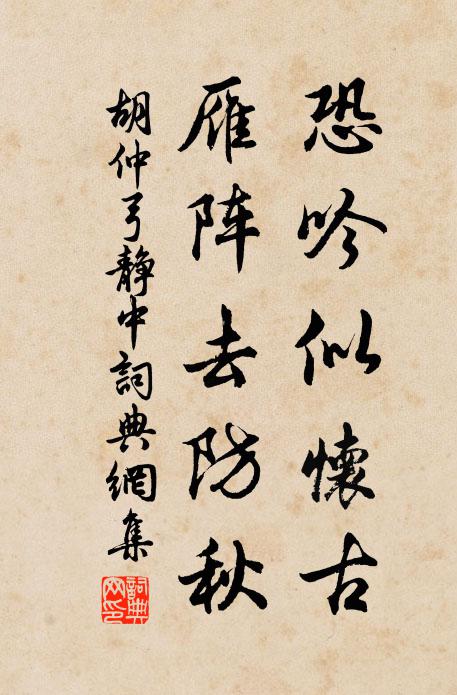 恐吟似懷古
雁阵去防秋
胡仲弓静中詞典網集
詞典網印